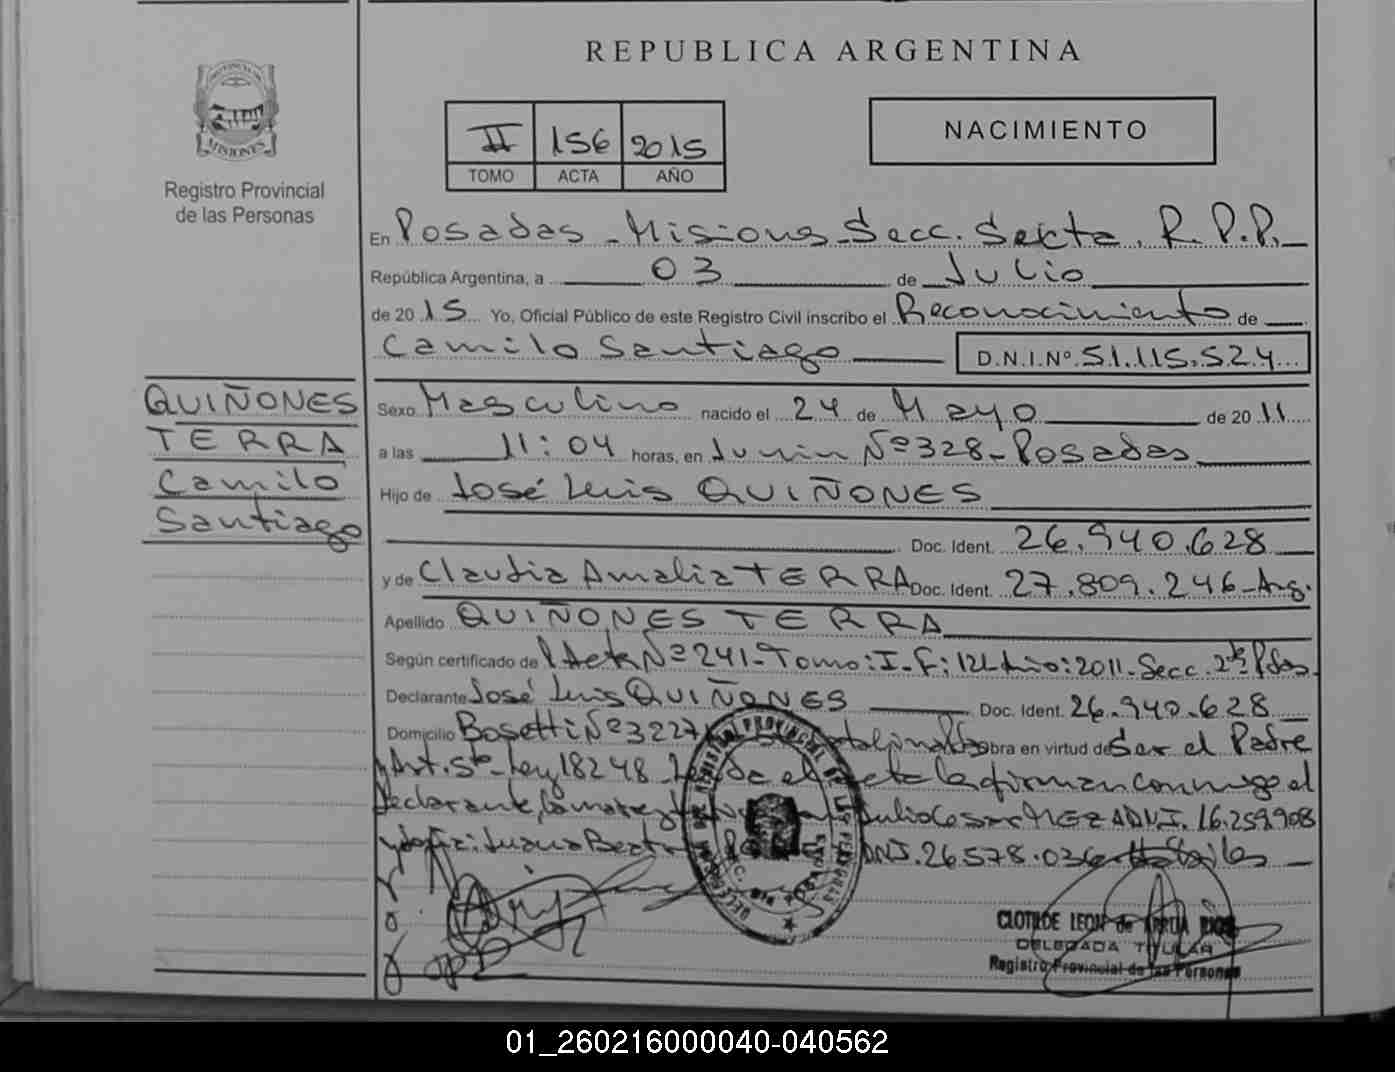 REPUBLICA ARGENTINA
PROVINCIA DE
MISIONES
Registro Provincial
de las Personas
II 156 2015
TOMO ACTA AÑO
NACIMIENTO
En Posadas - Misiones - Secc. Sexta. R. P. P.
República Argentina, a 03 de Julio
de 2015 Yo, Oficial Público de este Registro Civil inscribo el Reconocimiento de
Camilo Santiago D.N.I.Nº 51.115.524
QUIÑONES
TERRA
Camilo
Santiago
Sexo Masculino nacido el 24 de Mayo de 2011
a las 11:04 horas, en Junin Nº 328 - Posadas
Hijo de José Luis QUIÑONES
Doc. Ident. 26.940.628
y de Claudia Amalia TERRA Doc. Ident. 27.809.246 - Arg.
Apellido QUIÑONES TERRA
Según certificado de Acta Nº 241 - Tomo: I - F: 121 Año: 2011 - Secc. 2ª Pdas.
Declarante José Luis QUIÑONES Doc. Ident. 26.940.628
Domicilio Bosetti Nº 3227 obra en virtud de Ser el Padre
y Art. 5to - Ley 18248 - el acta la firman conmigo el
Declarante, la madre y Julio Cesar MEZA DNI. 16.259.908
Juana DNI. 26.578.036
CLOTILDE LEON de RIOS
DELEGADA TITULAR
Registro Provincial de las Personas
01_260216000040-040562